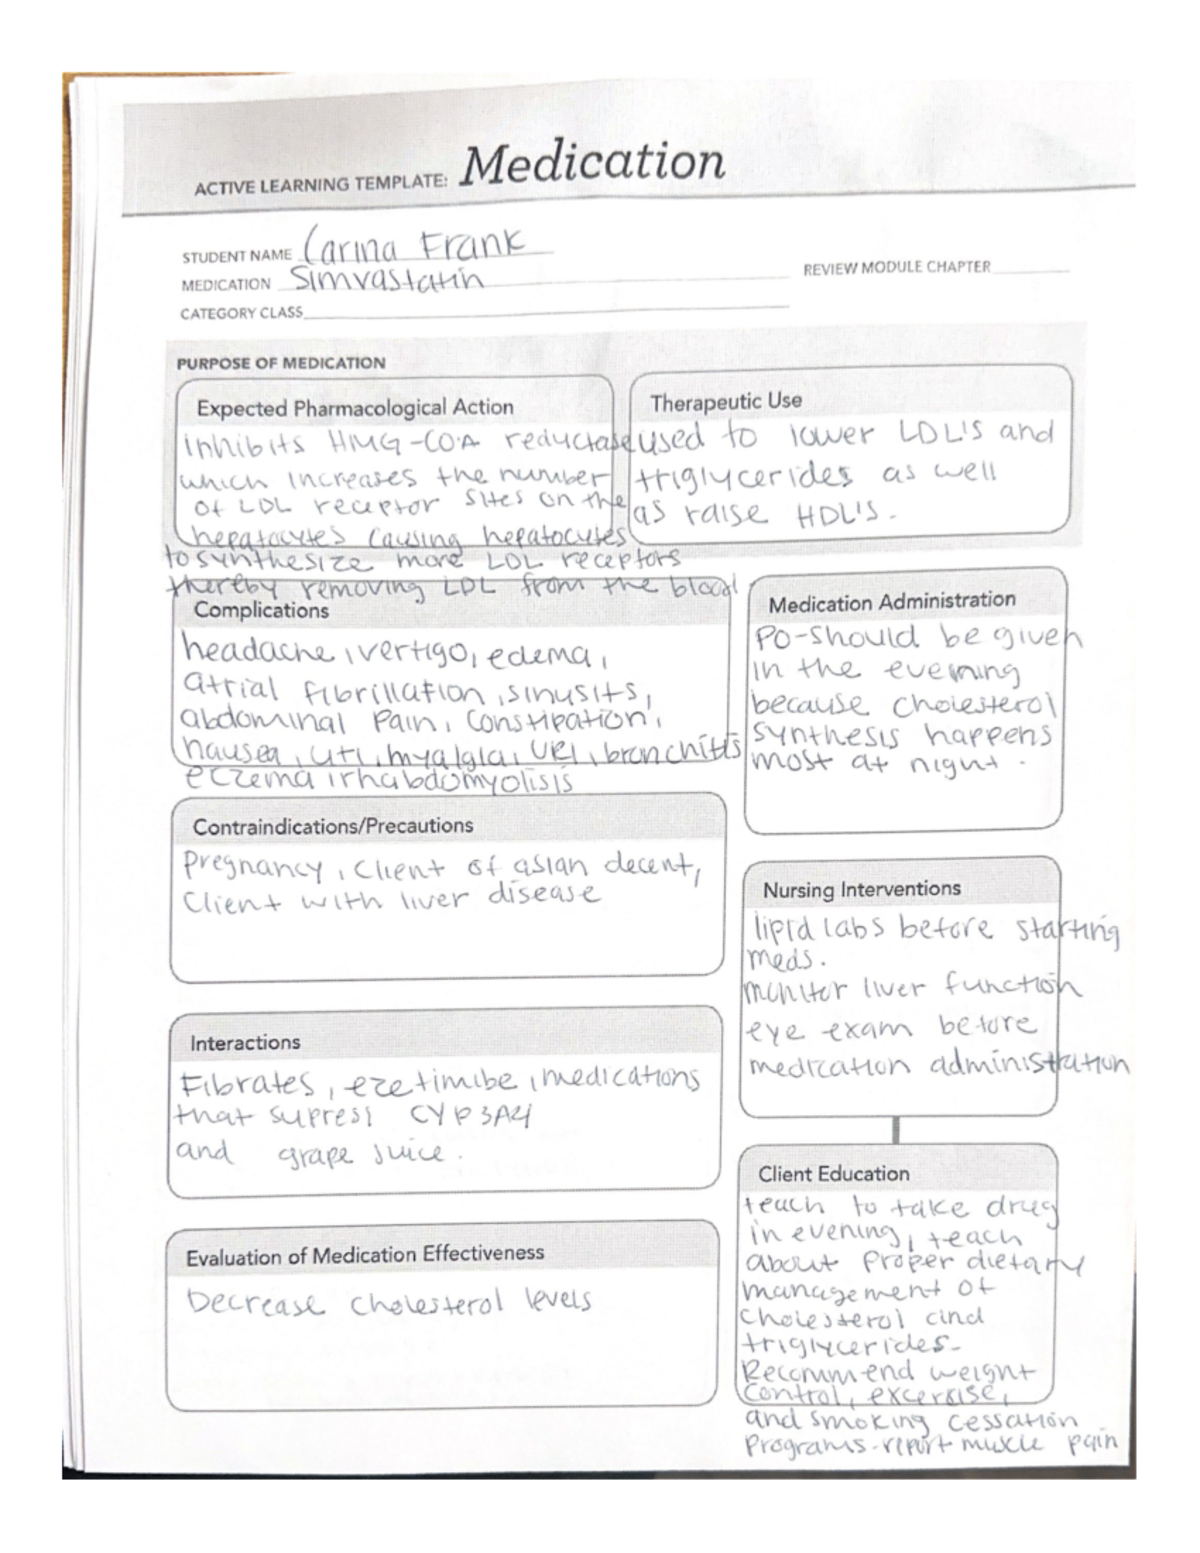 ACTIVE LEARNING TEMPLATE: Medication
STUDENT NAME Carina Frank
MEDICATION Simvastatin
REVIEW MODULE CHAPTER
CATEGORY CLASS
PURPOSE OF MEDICATION
Expected Pharmacological Action
inhibits HMG-COA reductase
which increases the number
of LDL receptor sites on the
hepatocytes causing hepatocytes
to synthesize more LDL receptors
thereby removing LDL from the blood
Therapeutic Use
used to lower LDL's and
triglycerides as well
as raise HDL's.
Complications
headache, vertigo, edema,
atrial fibrillation, sinusits,
abdominal pain, constipation,
nausea, UTI, myalgia, URI, bronchitis
eczema, rhabdomyolisis
Medication Administration
PO-should be given
in the evening
because cholesterol
synthesis happens
most at night.
Contraindications/Precautions
Pregnancy, client of asian decent,
client with liver disease
Nursing Interventions
lipid labs before starting
meds.
monitor liver function
eye exam before
medication administration
Interactions
Fibrates, ezetimibe, medications
that supress CYP3A4
and grape juice.
Client Education
teach to take drug
in evening, teach
about proper dietary
management of
cholesterol and
triglycerides-
Recommend weight
control, excersise,
and smoking cessation
programs-report muscle pain
Evaluation of Medication Effectiveness
Decrease cholesterol levels